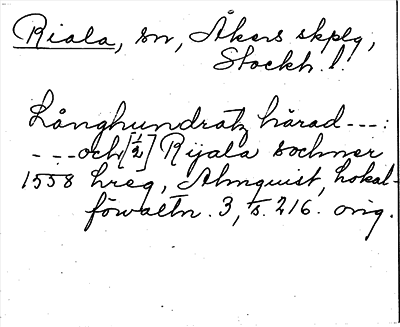 Riala, sn, Åkers skplg,
Stockh. l.
Långhundratz härad ---:
--- och [½] Rijala sochner
1558 hreg, Almquist, Lokal-
förvaltn. 3, s. 216. orig.